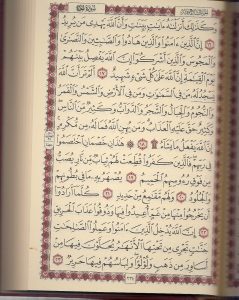 الجزء السابع عشر
سورة الحج
وَكَذَٰلِكَ أَنزَلْنَٰهُ ءَايَٰتٍۭ بَيِّنَٰتٍ وَأَنَّ ٱللَّهَ يَهْدِى مَن يُرِيدُ
١٦ إِنَّ ٱلَّذِينَ ءَامَنُوا۟ وَٱلَّذِينَ هَادُوا۟ وَٱلصَّٰبِـِٔينَ وَٱلنَّصَٰرَىٰ
وَٱلْمَجُوسَ وَٱلَّذِينَ أَشْرَكُوٓا۟ إِنَّ ٱللَّهَ يَفْصِلُ بَيْنَهُمْ
يَوْمَ ٱلْقِيَٰمَةِ إِنَّ ٱللَّهَ عَلَىٰ كُلِّ شَىْءٍ شَهِيدٌ ١٧ أَلَمْ تَرَ أَنَّ ٱللَّهَ
يَسْجُدُ لَهُۥ مَن فِى ٱلسَّمَٰوَٰتِ وَمَن فِى ٱلْأَرْضِ وَٱلشَّمْسُ وَٱلْقَمَرُ
وَٱلنُّجُومُ وَٱلْجِبَالُ وَٱلشَّجَرُ وَٱلدَّوَآبُّ وَكَثِيرٌ مِّنَ ٱلنَّاسِ
وَكَثِيرٌ حَقَّ عَلَيْهِ ٱلْعَذَابُ وَمَن يُهِنِ ٱللَّهُ فَمَا لَهُۥ مِن مُّكْرِمٍ
إِنَّ ٱللَّهَ يَفْعَلُ مَا يَشَآءُ ۩ ١٨ هَٰذَانِ خَصْمَانِ ٱخْتَصَمُوا۟
فِى رَبِّهِمْ فَٱلَّذِينَ كَفَرُوا۟ قُطِّعَتْ لَهُمْ ثِيَابٌ مِّن نَّارٍ يُصَبُّ
مِن فَوْقِ رُءُوسِهِمُ ٱلْحَمِيمُ ١٩ يُصْهَرُ بِهِۦ مَا فِى بُطُونِهِمْ
وَٱلْجُلُودُ ٢٠ وَلَهُم مَّقَٰمِعُ مِنْ حَدِيدٍ ٢١ كُلَّمَآ أَرَادُوٓا۟
أَن يَخْرُجُوا۟ مِنْهَا مِنْ غَمٍّ أُعِيدُوا۟ فِيهَا وَذُوقُوا۟ عَذَابَ ٱلْحَرِيقِ
٢٢ إِنَّ ٱللَّهَ يُدْخِلُ ٱلَّذِينَ ءَامَنُوا۟ وَعَمِلُوا۟ ٱلصَّٰلِحَٰتِ
جَنَّٰتٍ تَجْرِى مِن تَحْتِهَا ٱلْأَنْهَٰرُ يُحَلَّوْنَ فِيهَا مِنْ
أَسَاوِرَ مِن ذَهَبٍ وَلُؤْلُؤًا وَلِبَاسُهُمْ فِيهَا حَرِيرٌ ٢٣
٣٣٤